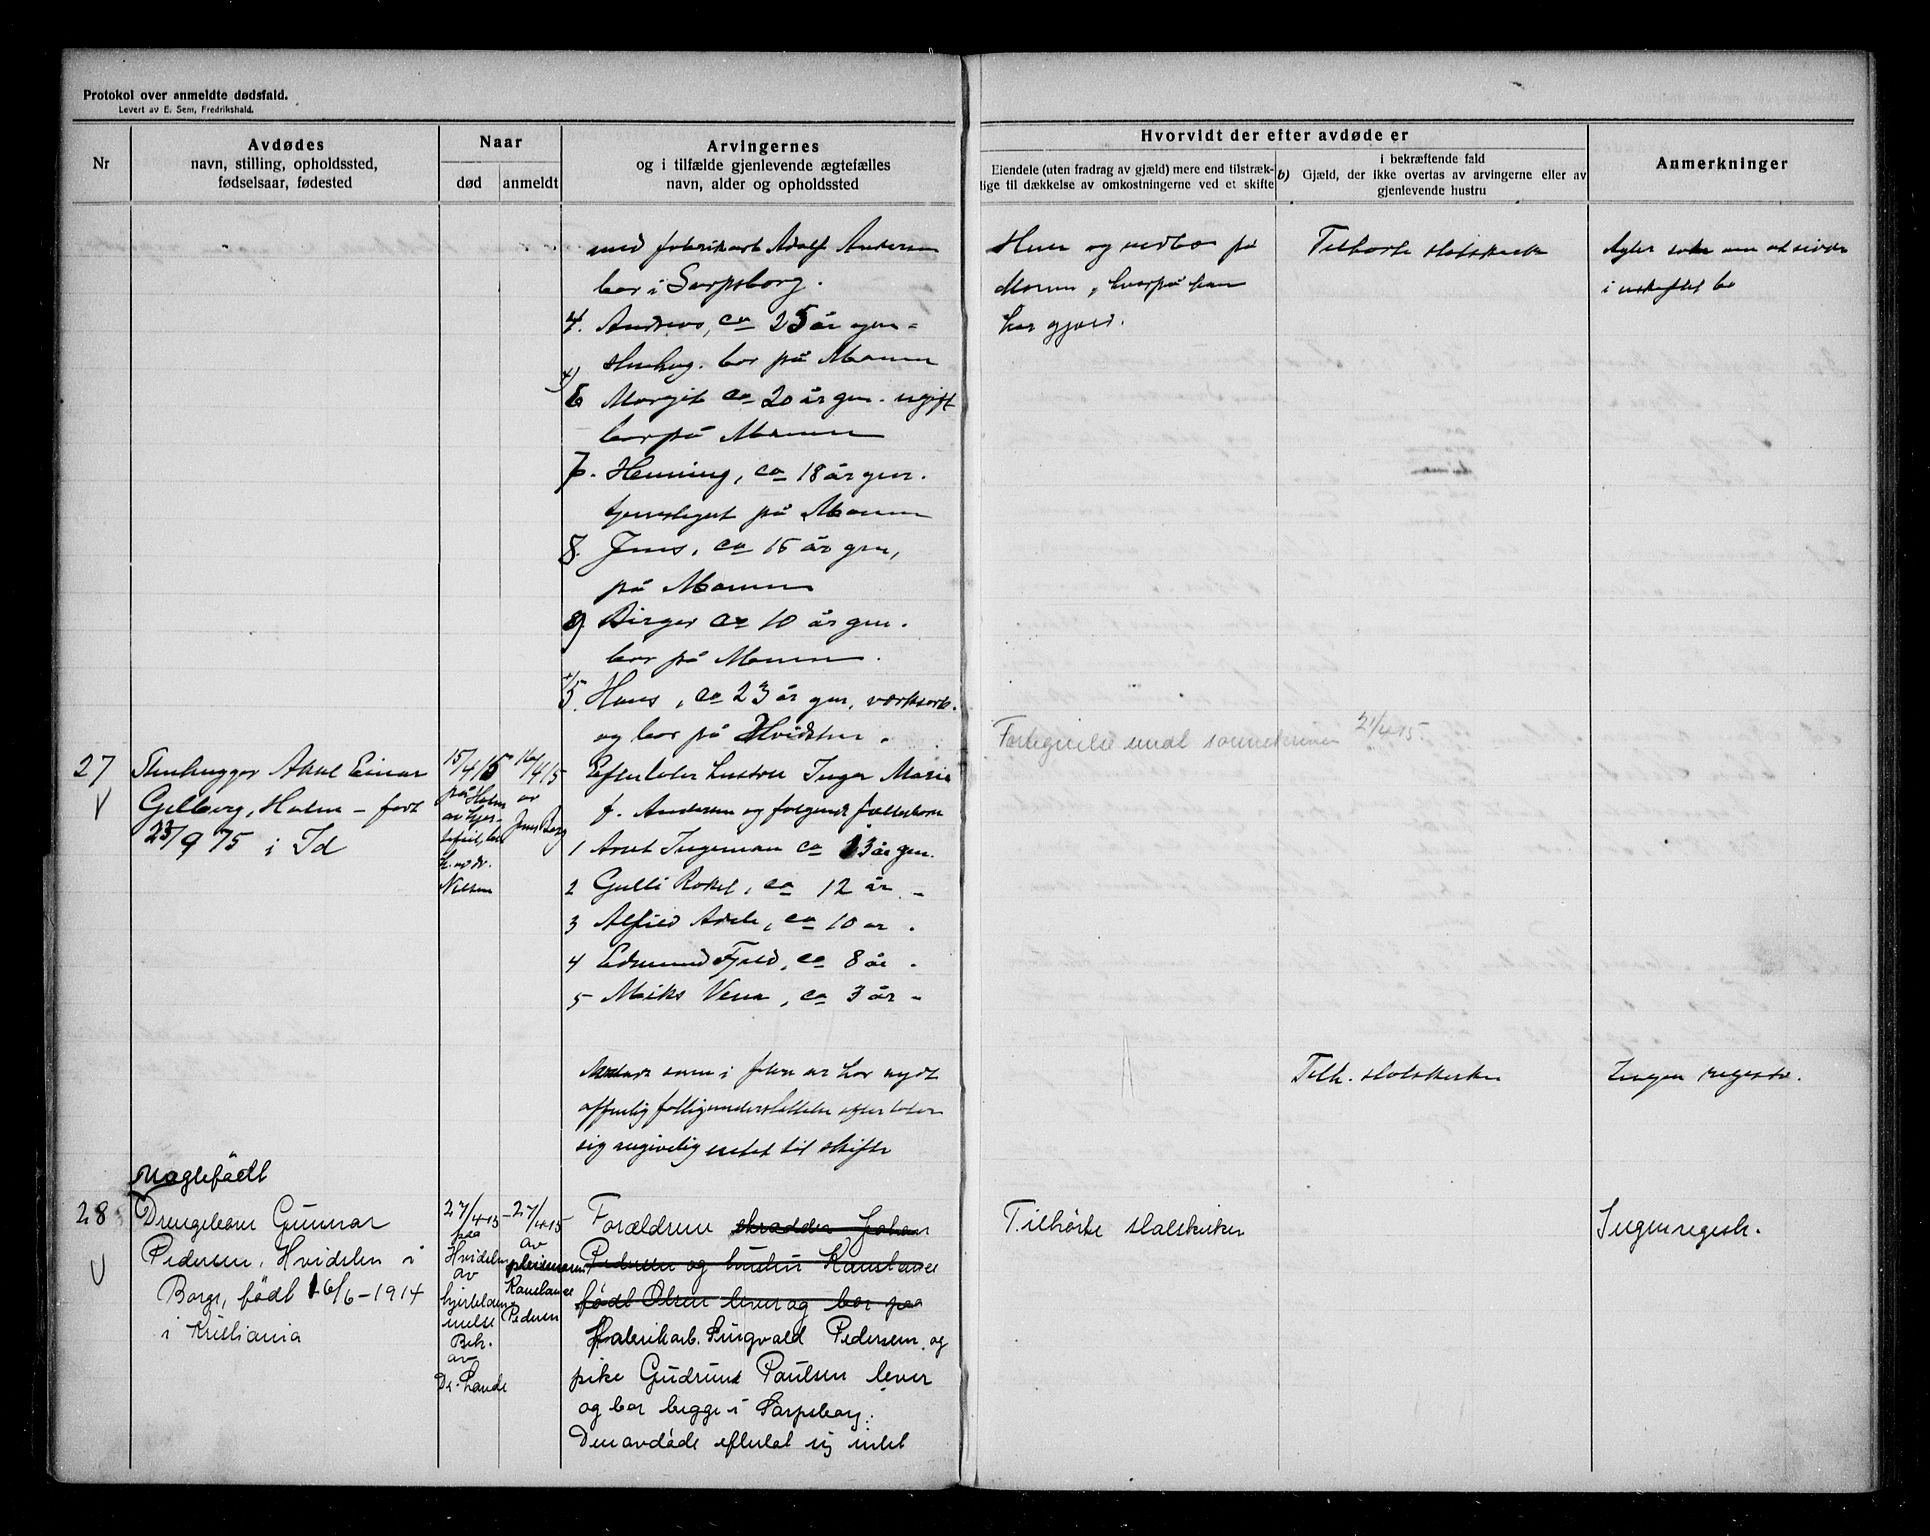 Protokol over anmeldte dødsfald.
Levert av E. Sem, Fredrikshald.
Nr
Avdødes
navn, stilling, opholdssted,
fødselsaar, fødested
Naar
død
anmeldt
Arvingernes
og i tilfælde gjenlevende ægtefælles
navn, alder og opholdssted
Hvorvidt der efter avdøde er
Eiendele (uten fradrag av gjæld) mere end tilstræk-
lige til dækkelse av omkostningerne ved et skifte
i bekræftende fald
b) Gjæld, der ikke overtas av arvingerne eller av
gjenlevende hustru
Anmerkninger
med fabrikarb Adolf Andersen
bor i Sarpsborg.
4. Andreas, ca 25 år gm-
stenhug. bor på Moum
6 Margit ca 20 år gm. ugift
bor på Moum
7. Henning, ca 18 år gm.
på Moum
8. Jens, ca 15 år gm,
på Moum
9. Birger ca 10 år gm.
bor på Moum.
5. Hans, ca 23 år gm, værksarb.
og bor på Hvidsten.
Hus og på
Moum, hvorpå han
har gjæld.
Tilhørte statskirken
i uskiftet bo
27
Stenhugger Aksel Einar
Gelberg, Holm - født
23/9 75 i Id
15/4 15
på Holm
av hjer-
av dr.
Nilsen
16/4 15
av
Jens Berg
Efterlater hustru Inga Marie
f. Andersen og følgende fællesbarn
1 Arnt Ingeman ca 13 år gm.
2 Gulli Rakel, ca 12 år -
3 Alfild Adele, ca 10 år.
4 Edmund Fjeld, ca 8 år.
5 Meiks Vena, ca 3 år -
som i har nydt
offentlig fattigunderstøttelse efterlater
sig angivelig intet til skifte
21/4 15.
Tilh. statskirken
Ingen registr.
Uægtefødt
28
Drengebarn Gunnar
Pedersen, Hvidsten i
Borge, født 16/6-1914
i Kristiania
27/4 15
paa
Hvidsten
av
Bek.
av
Dr. Lande
27/4 15
av
pleiemoren
Konstanse
Pedersen
Forældrene skrædder Johan
Pedersen og hustru Konstanse
født Olsen lever og bor paa
Fabrikarb. Singvald Pedersen og
pike Gudrund Paulsen lever
og bor begge i Sarpsborg.
Den avdøde efterlot sig intet
Tilhørte statskirken
Ingen registr.